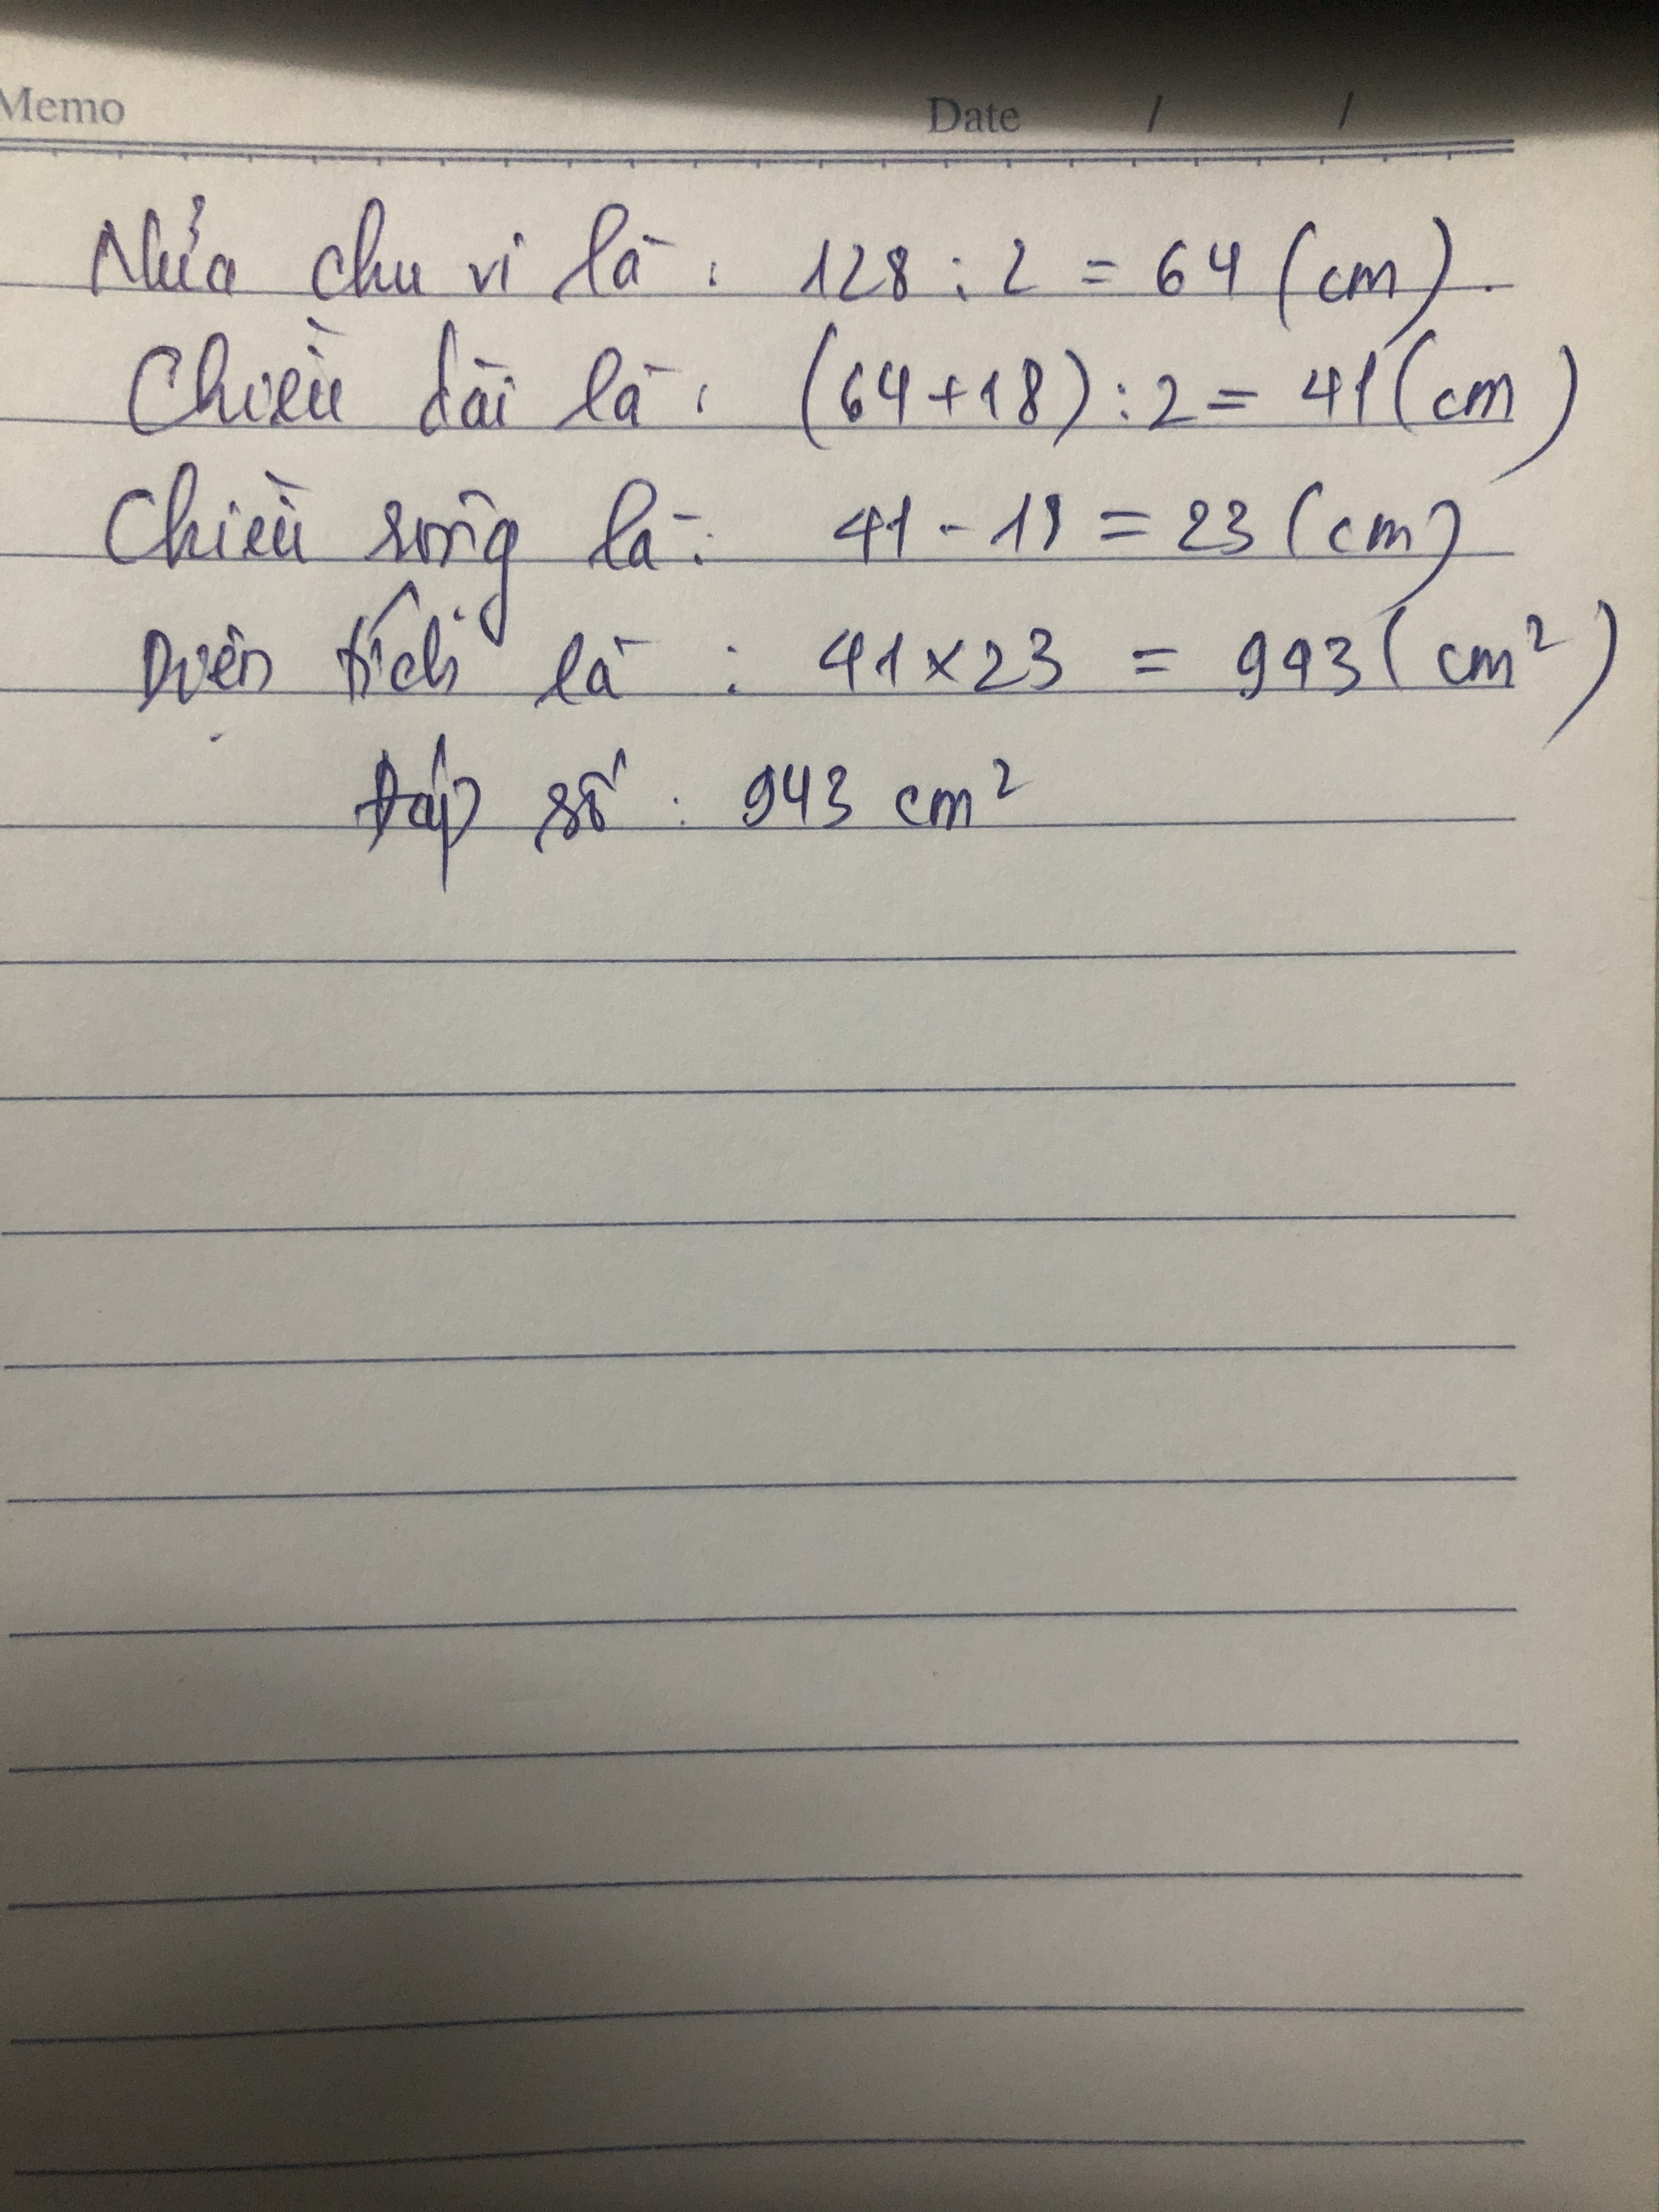 Memo Date / /
Nửa chu vi là : 128 : 2 = 64 (cm).
Chiều dài là : (64+18) : 2 = 41 (cm)
Chiều rộng là : 41 - 18 = 23 (cm)
Diện tích là : 41 x 23 = 943 (cm²)
Đáp số : 943 cm²